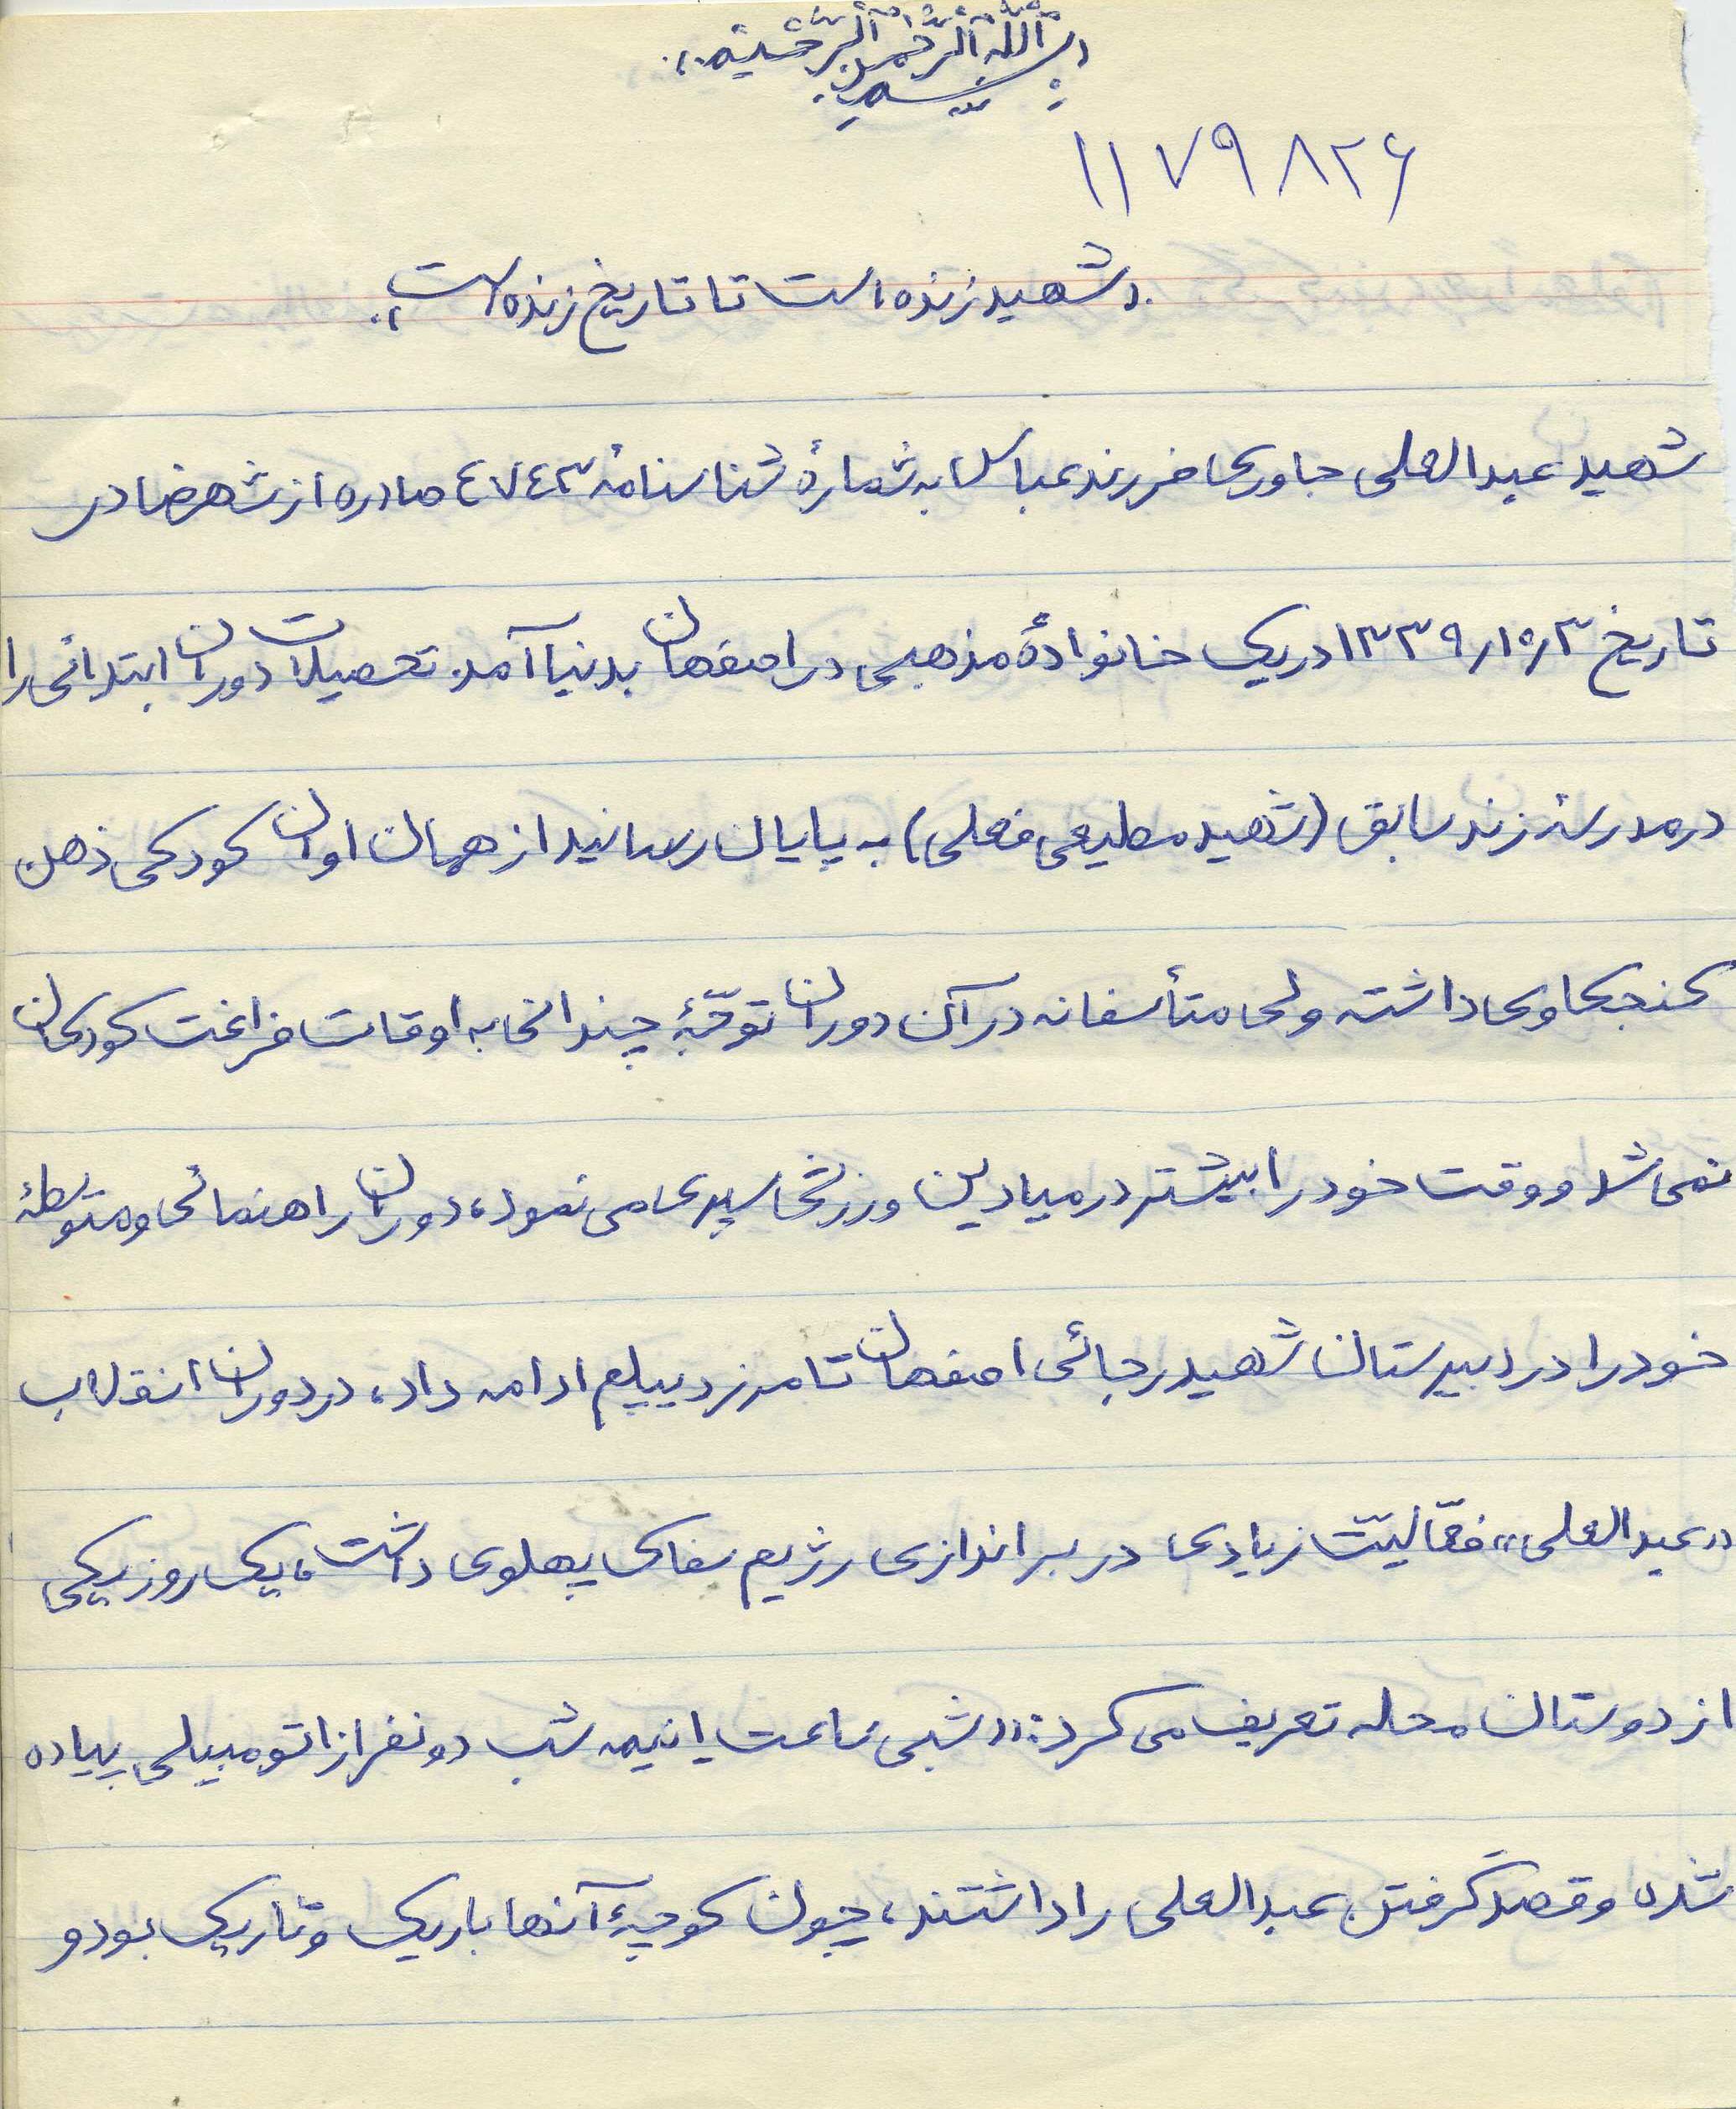 بسم الله الرحمن الرحیم
۱۱۷۹۸۲۶
«شهید زنده است تا تاریخ زنده است»
شهید عبدالعلی جاوری فرزند عباس به شمارهٔ شناسنامهٔ ٤٧٤٣ صادره از شهرضا در
تاریخ ۱۳۳۹٫۱۰٫۳ در یک خانوادهٔ مذهبی در اصفهان بدنیا آمد. تحصیلات دوران ابتدائی را
در مدرسهٔ زند سابق (شهید مطیعی فعلی) به پایان رسانید از همان اوان کودکی ذهن
کنجکاوی داشته ولی متأسفانه در آن دوران توجّهٔ چندانی به اوقات فراغت کودکان
نمی شد و وقت خود را بیشتر در میادین ورزشی سپری می نمود، دوران راهنمائی و متوسطهٔ
خود را در دبیرستان شهید رجائی اصفهان تا مرز دیپلم ادامه داد، در دوران انقلاب
«عبدالعلی» فعّالیّت زیادی در براندازی رژیم سفاک پهلوی داشت، یک روز یکی
از دوستان محله تعریف می کرد: «شبی ساعت یا نیمه شب دو نفر از اتومبیلی پیاده
شده و قصد گرفتن عبدالعلی را داشتند، چون کوچهٔ آنها باریک و تاریک بود و